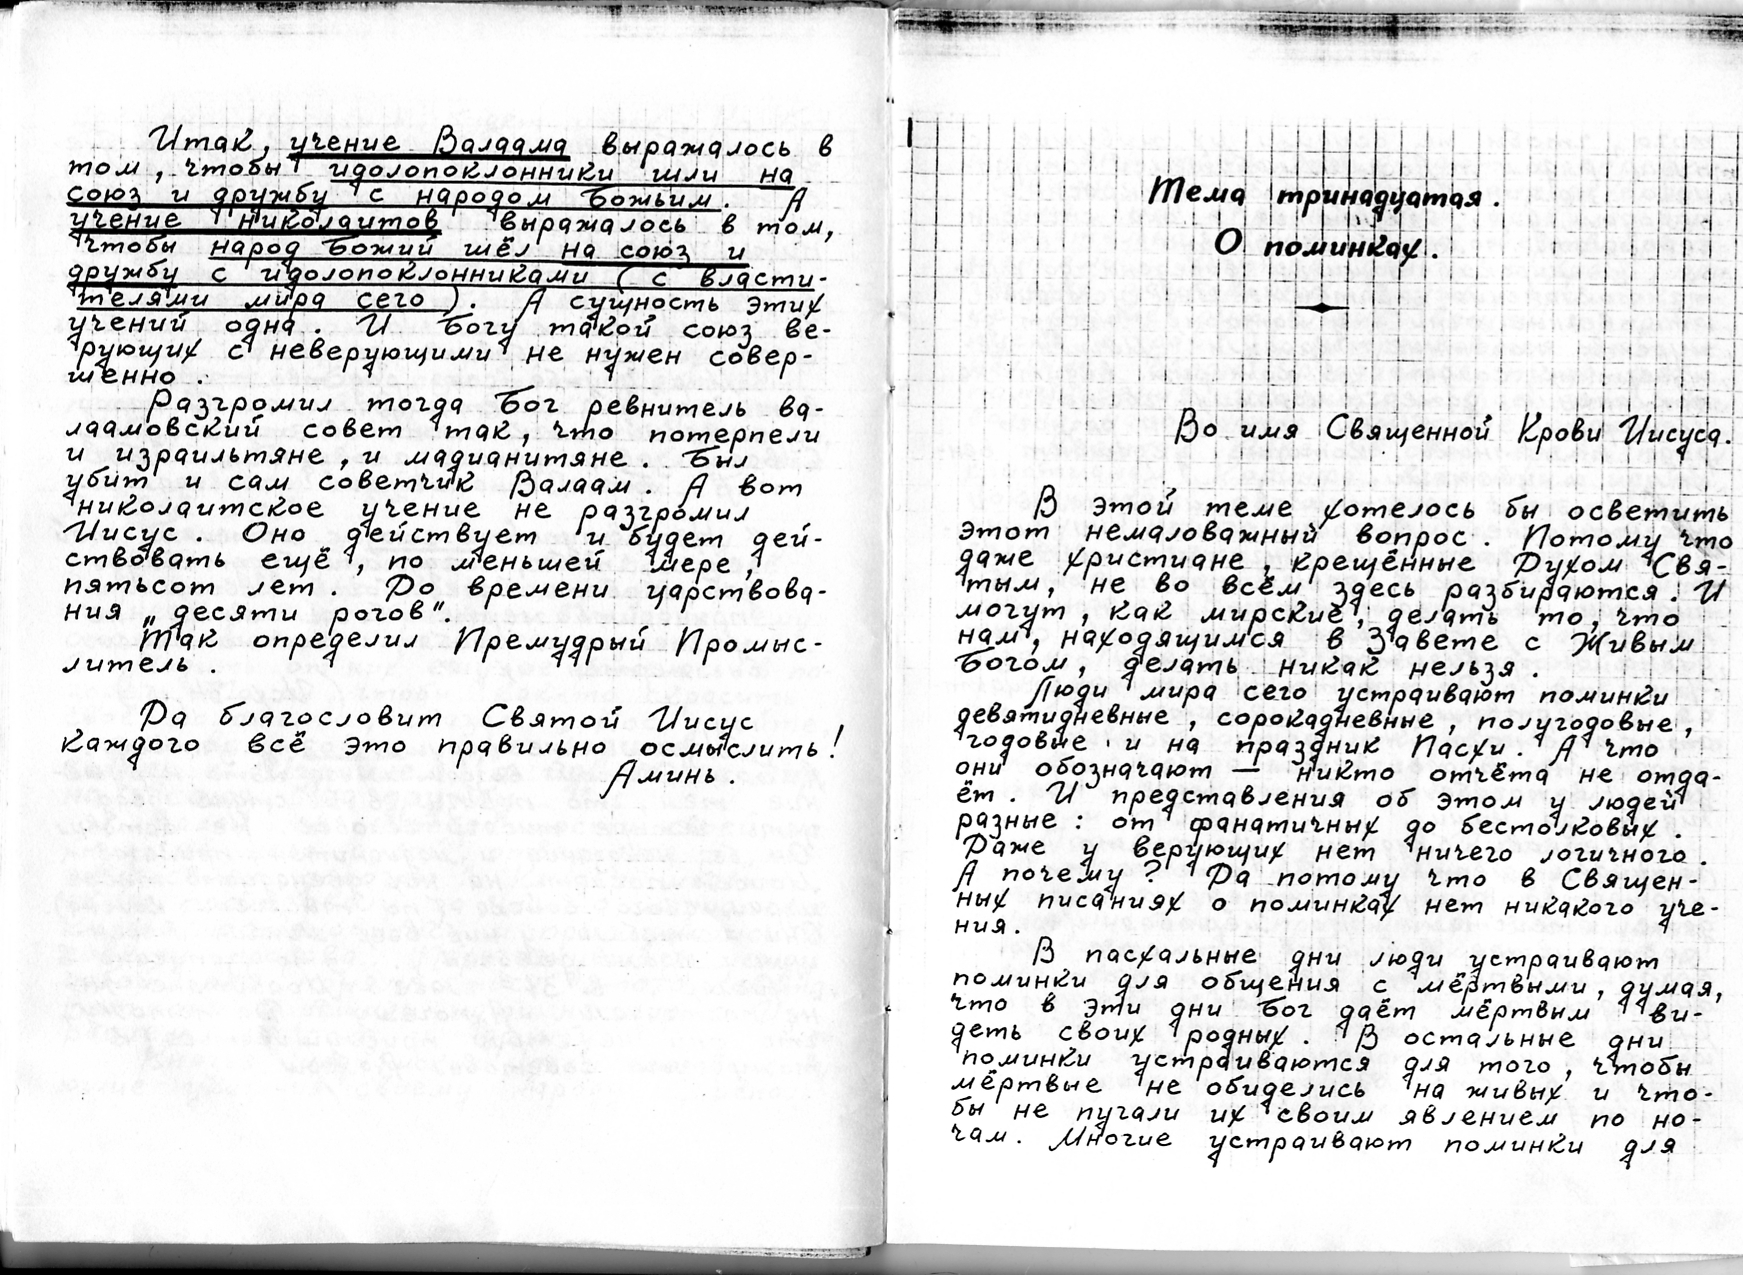 Итак, учение Валаама выражалось в
том, чтобы идолопоклонники шли на
союз и дружбу с народом Божьим. А
учение николаитов выражалось в том,
чтобы народ Божий шёл на союз и
дружбу с идолопоклонниками (с власти-
телями мира сего). А сущность этих
учений одна. И Богу такой союз ве-
рующих с неверующими не нужен совер-
шенно.
Разгромил тогда Бог ревнитель ва-
лаамовский совет так, что потерпели
и израильтяне, и мадианитяне. Был
убит и сам советчик Валаам. А вот
николаитское учение не разгромил
Иисус. Оно действует и будет дей-
ствовать ещё, по меньшей мере,
пятьсот лет. До времени царствова-
ния „десяти рогов".
Так определил Премудрый Промыс-
литель.
Да благословит Святой Иисус
каждого всё это правильно осмыслить!
Аминь.
Тема тринадцатая.
О поминках.
Во имя Священной Крови Иисуса.
В этой теме хотелось бы осветить
этот немаловажный вопрос. Потому что
даже христиане, крещённые Духом Свя-
тым, не во всём здесь разбираются. И
могут, как мирские, делать то, что
нам, находящимся в Завете с Живым
Богом, делать никак нельзя.
Люди мира сего устраивают поминки
девятидневные, сорокадневные, полугодовые,
годовые и на праздник Пасхи. А что
они обозначают — никто отчёта не отда-
ёт. И представления об этом у людей
разные: от фанатичных до бестолковых.
Даже у верующих нет ничего логичного.
А почему? Да потому что в Священ-
ных писаниях о поминках нет никакого уче-
ния.
В пасхальные дни люди устраивают
поминки для общения с мёртвыми, думая,
что в эти дни Бог даёт мёртвым ви-
деть своих родных. В остальные дни
поминки устраиваются для того, чтобы
мёртвые не обиделись на живых и что-
бы не пугали их своим явлением по но-
чам. Многие устраивают поминки для